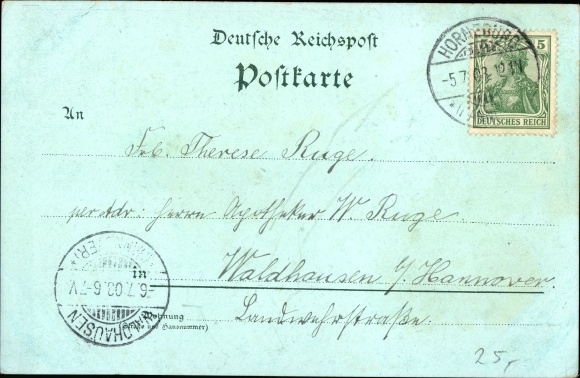 Deutsche Reichspost
Postkarte
HORNEBURG
-5.7.
5
DEUTSCHES REICH
An
Frl. Therese Ruge.
per Adr: Herrn Apotheker W. Ruge
in
Waldhausen b/Hannover.
Landwehrstraße.
Wohnung
(Straße und Hausnummer)
WALDHAUSEN
(HANNOVER)
6.7.03.6-7V
25,-